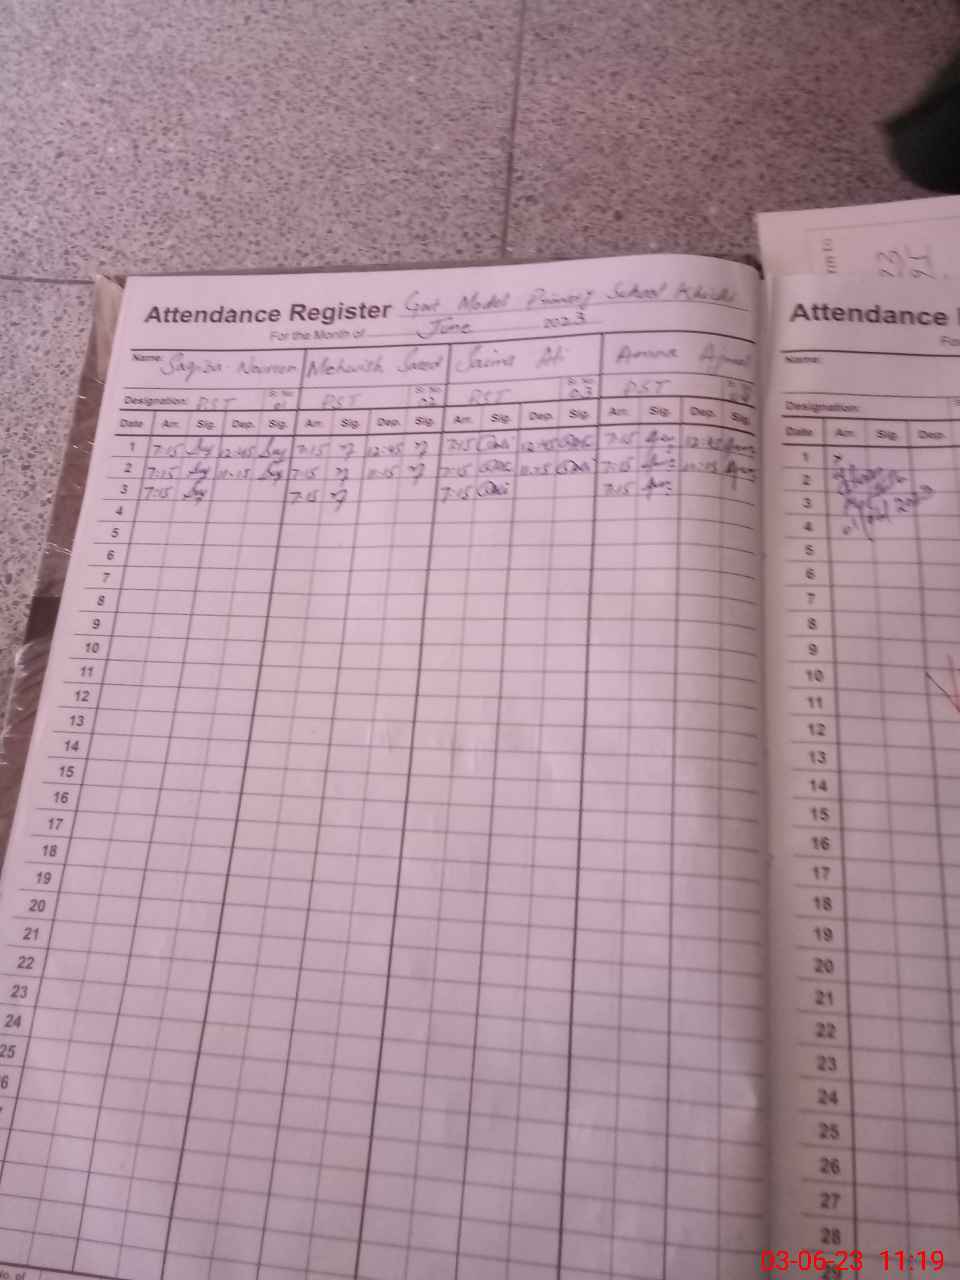 Attendance Register Govt Model Primary School
For the Month of June 2023
Name: Saqiba Noureen Mehwish Saeed Saima Ali Amna Ajmal
Designation: PST Sr. No. 01 PST Sr. No. 02 PST Sr. No. 03 PST Sr. No. 04
Date Arr. Sig. Dep. Sig. Arr. Sig. Dep. Sig. Arr. Sig. Dep. Sig. Arr. Sig. Dep. Sig.
1 7:15 12:45 7:15 12:45 7:15 12:45 7:15 12:45
2 7:15 11:15 7:15 11:15 7:15 11:15 7:15 11:15
3 7:15 7:15 7:15 7:15
4
5
6
7
8
9
10
11
12
13
14
15
16
17
18
19
20
21
22
23
24
25
6
No. of
23
24
Attendance
Fo
Name:
Designation:
Date Arr. Sig. Dep.
1
2
3
4
5
6
7
8
9
10
11
12
13
14
15
16
17
18
19
20
21
22
23
24
25
26
27
28
29
03-06-23 11:19